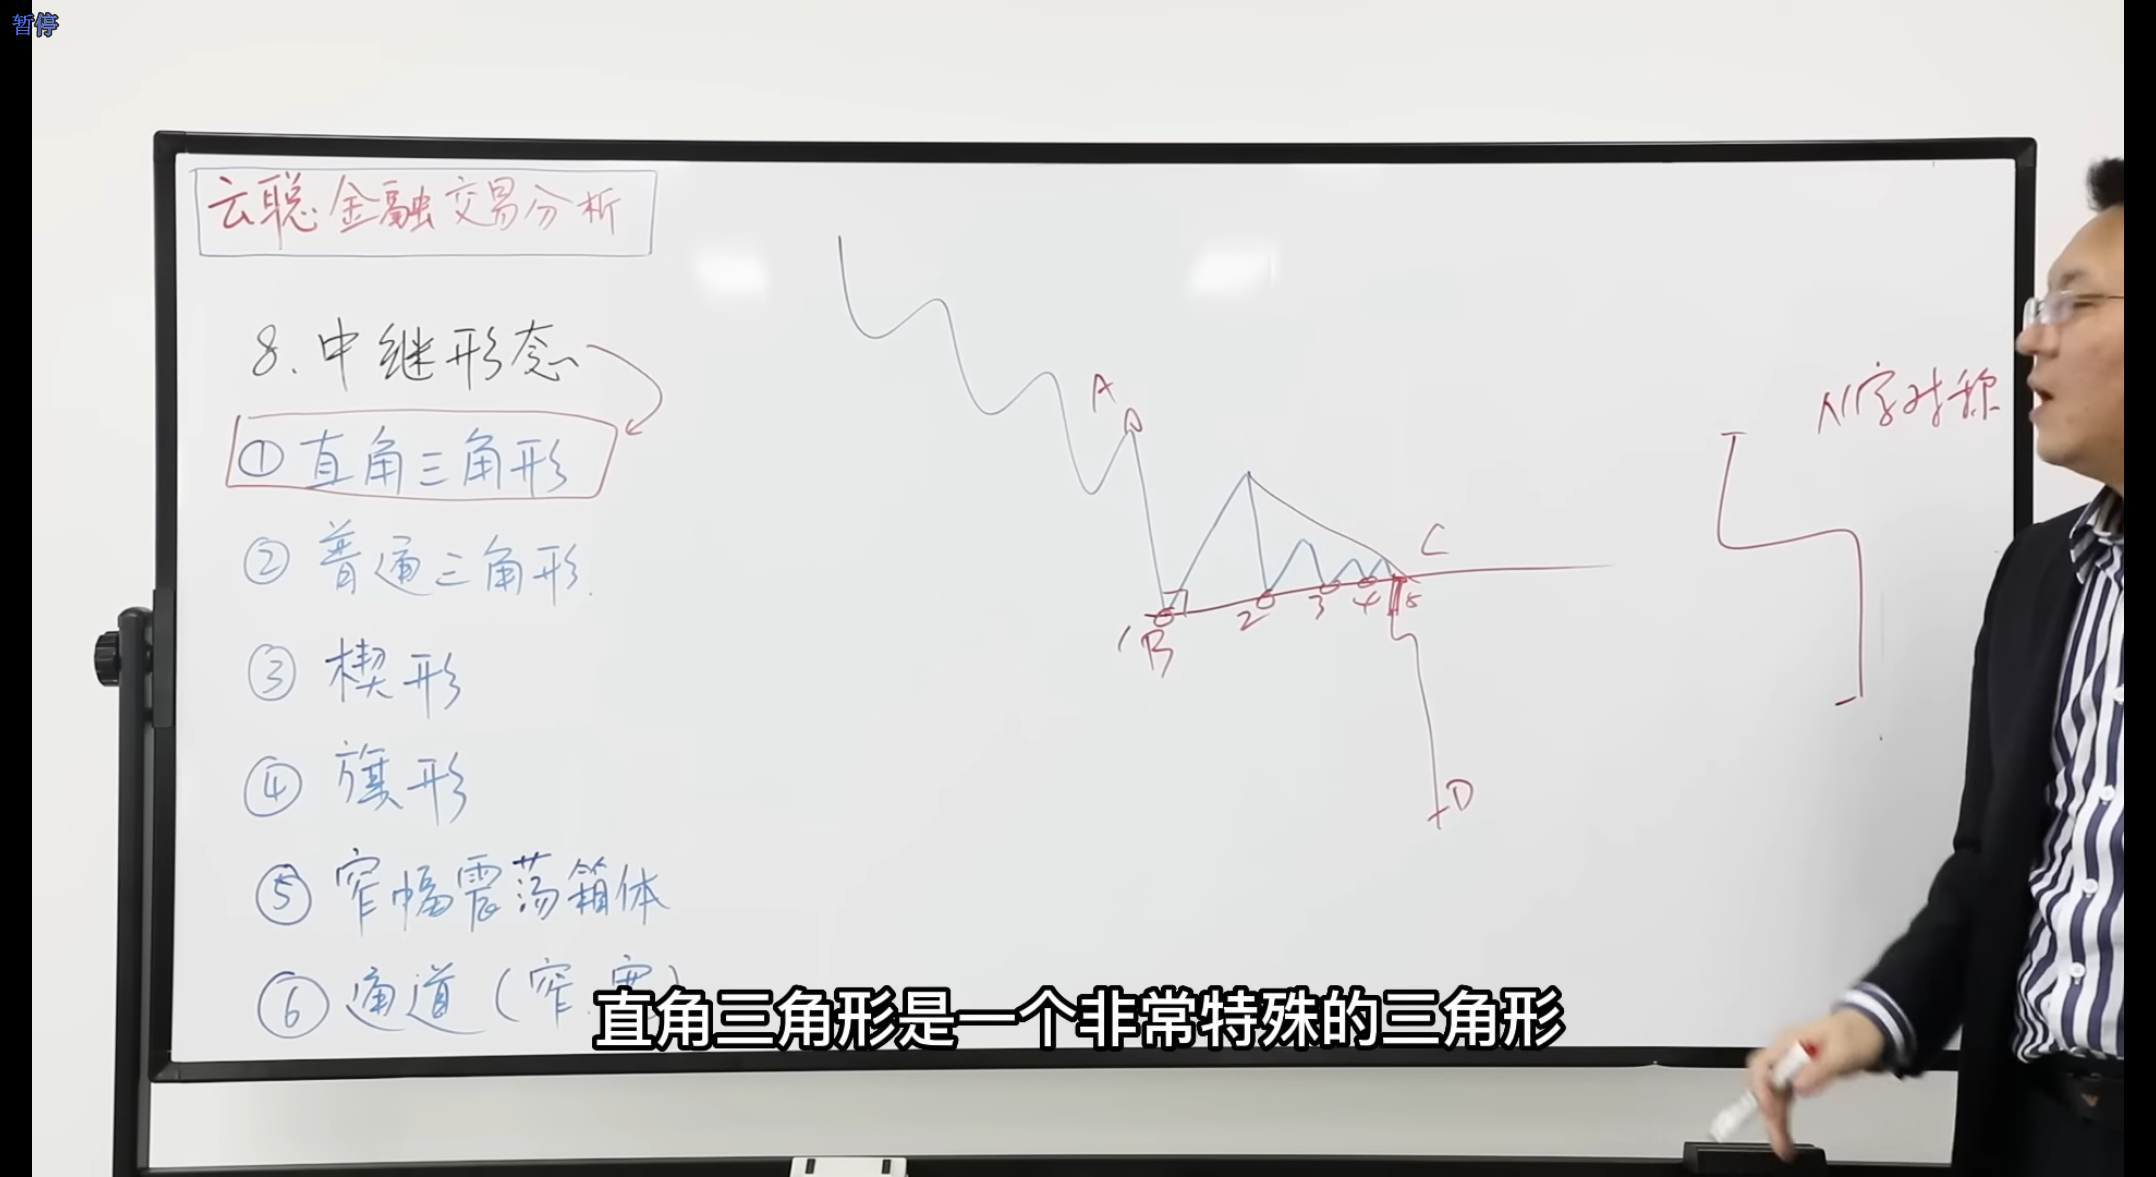 暂停
云聪金融交易分析
8.中继形态
①直角三角形
②普通三角形
③楔形
④旗形
⑤窄幅震荡箱体
⑥通道(窄.宽)
A
C
1 B 2 3 4 5
D
N字对称
直角三角形是一个非常特殊的三角形